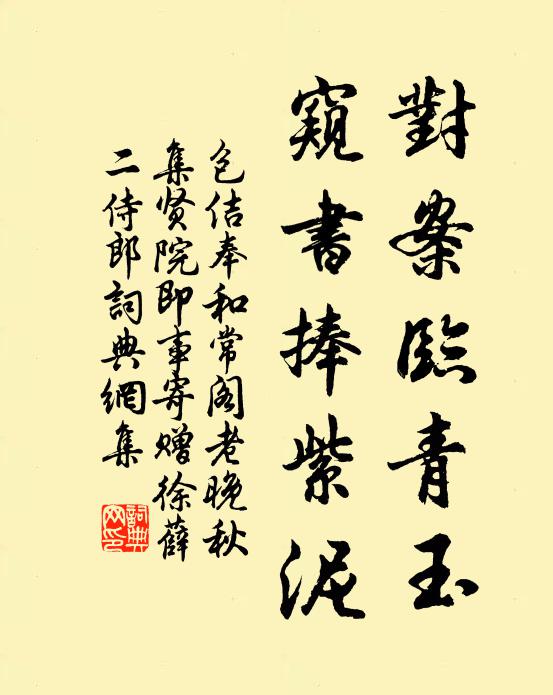 對案臨青玉
窺書捧紫泥
包佶奉和常阁老晚秋
集贤院即事寄赠徐薛
二侍郎詞典網集
詞典
网印